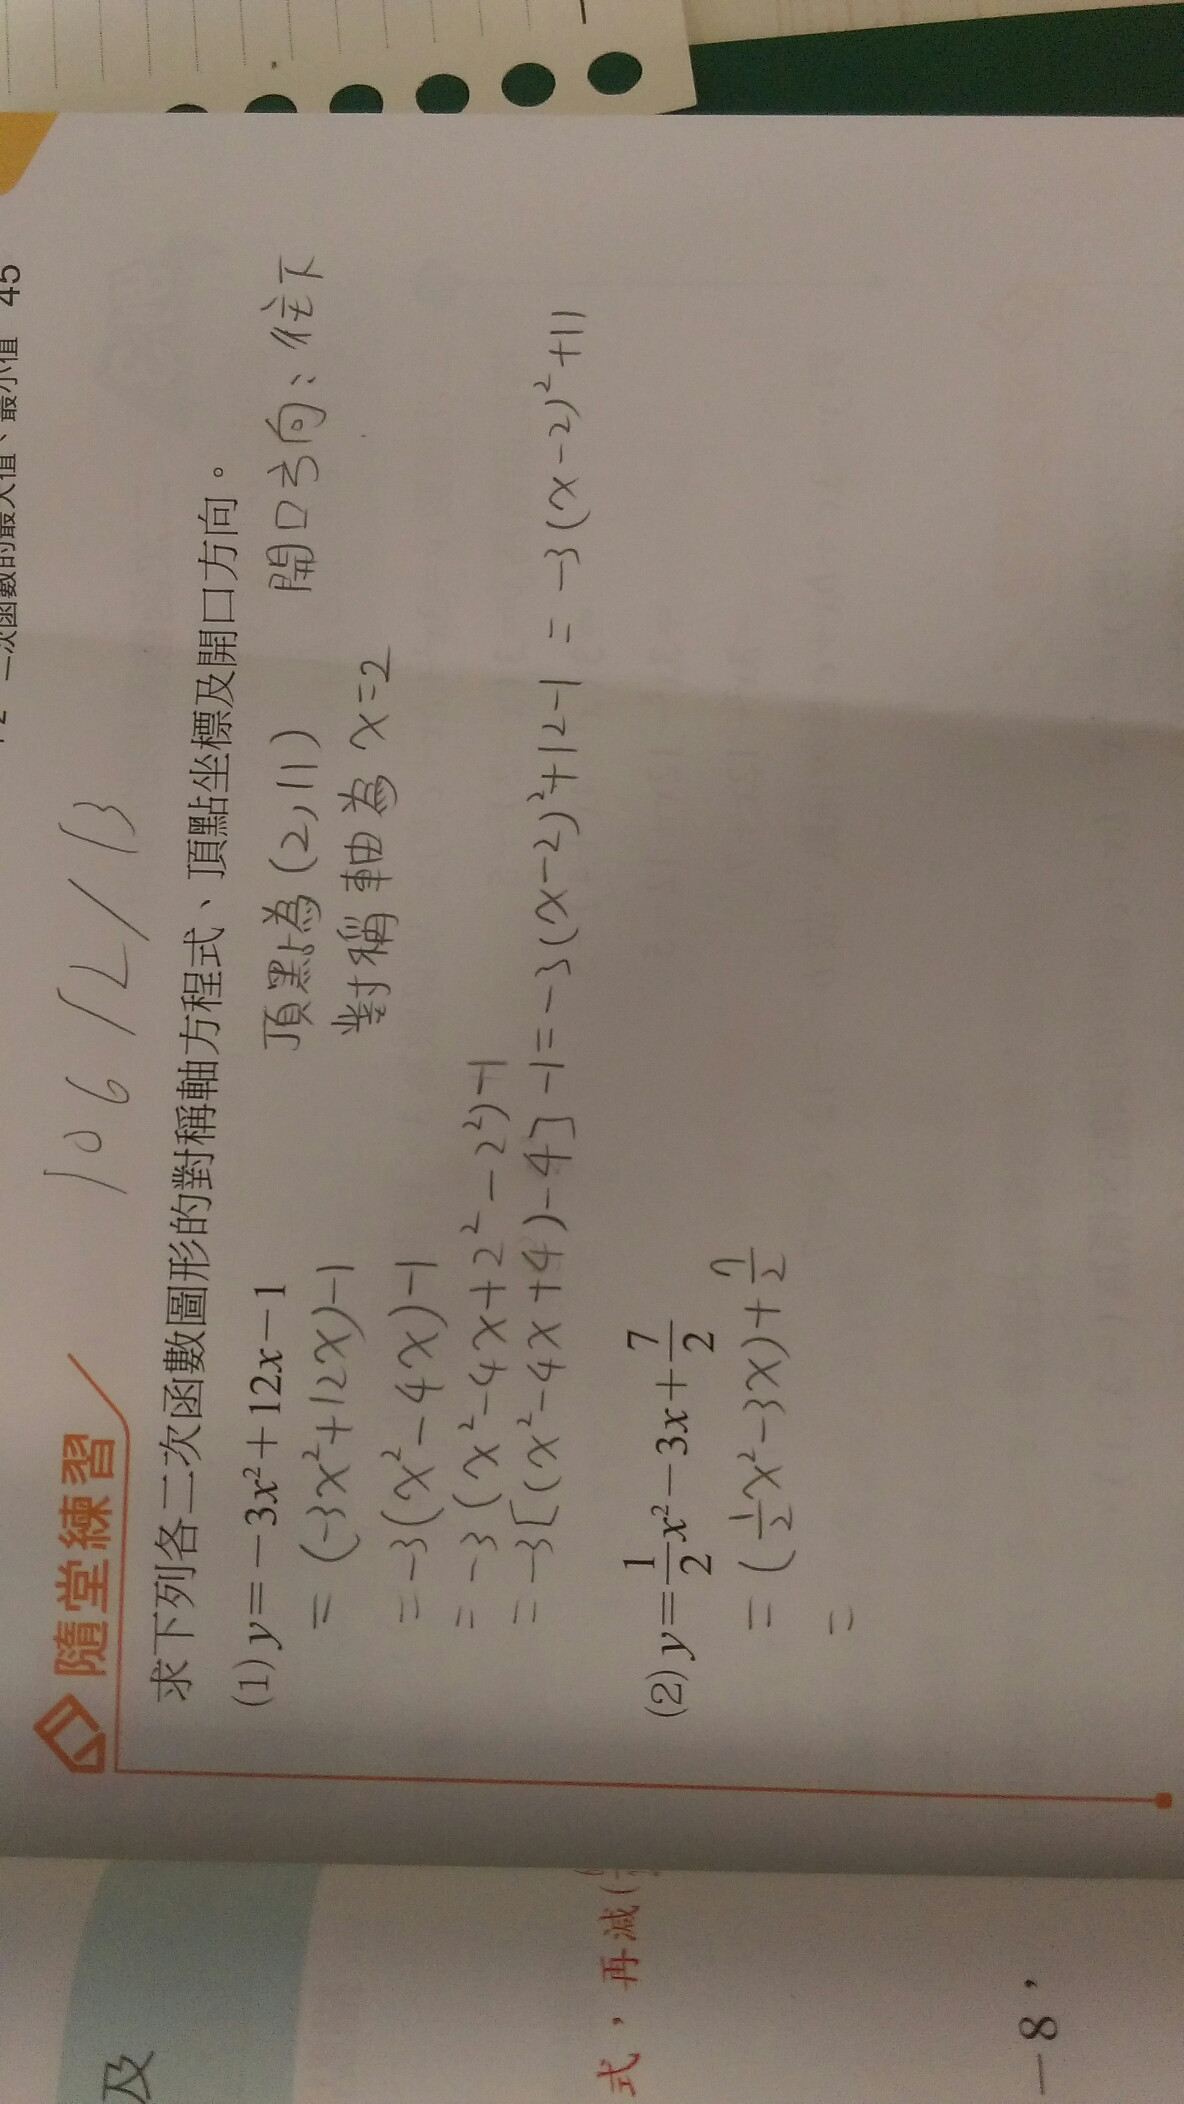 1-2 二次函數的最大值、最小值 45
106/12/13
隨堂練習
求下列各二次函數圖形的對稱軸方程式、頂點坐標及開口方向。
(1) y=-3x²+12x-1
頂點為(2,11)
開口方向:往下
=(-3x²+12x)-1
對稱軸為x=2
=-3(x²-4x)-1
=-3(x²-4x+2²-2²)-1
=-3[(x²-4x+4)-4]-1=-3(x-2)²+12-1=-3(x-2)²+11
(2) y=\frac{1}{2}x²-3x+\frac{7}{2}
=(\frac{1}{2}x²-3x)+\frac{7}{2}
=
及
式,再減(
-8,